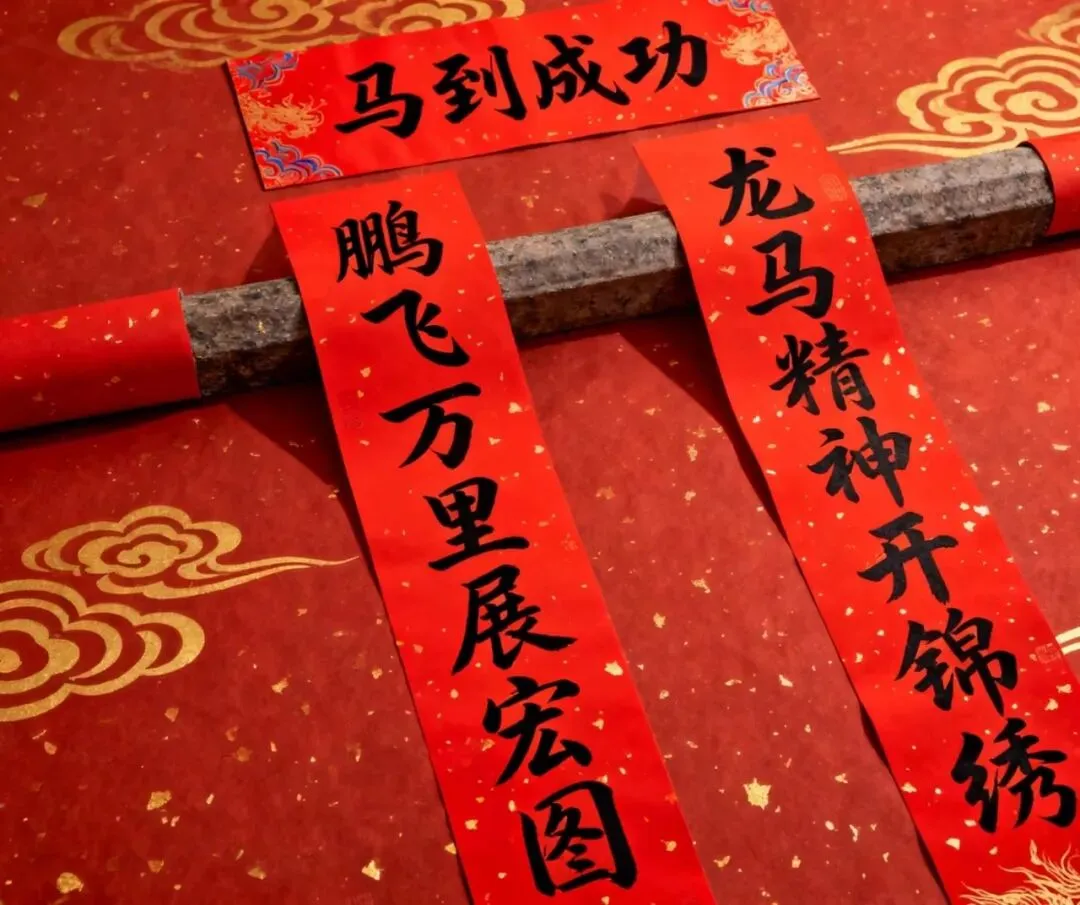 马到成功
龙马精神开锦绣
鹏飞万里展宏图